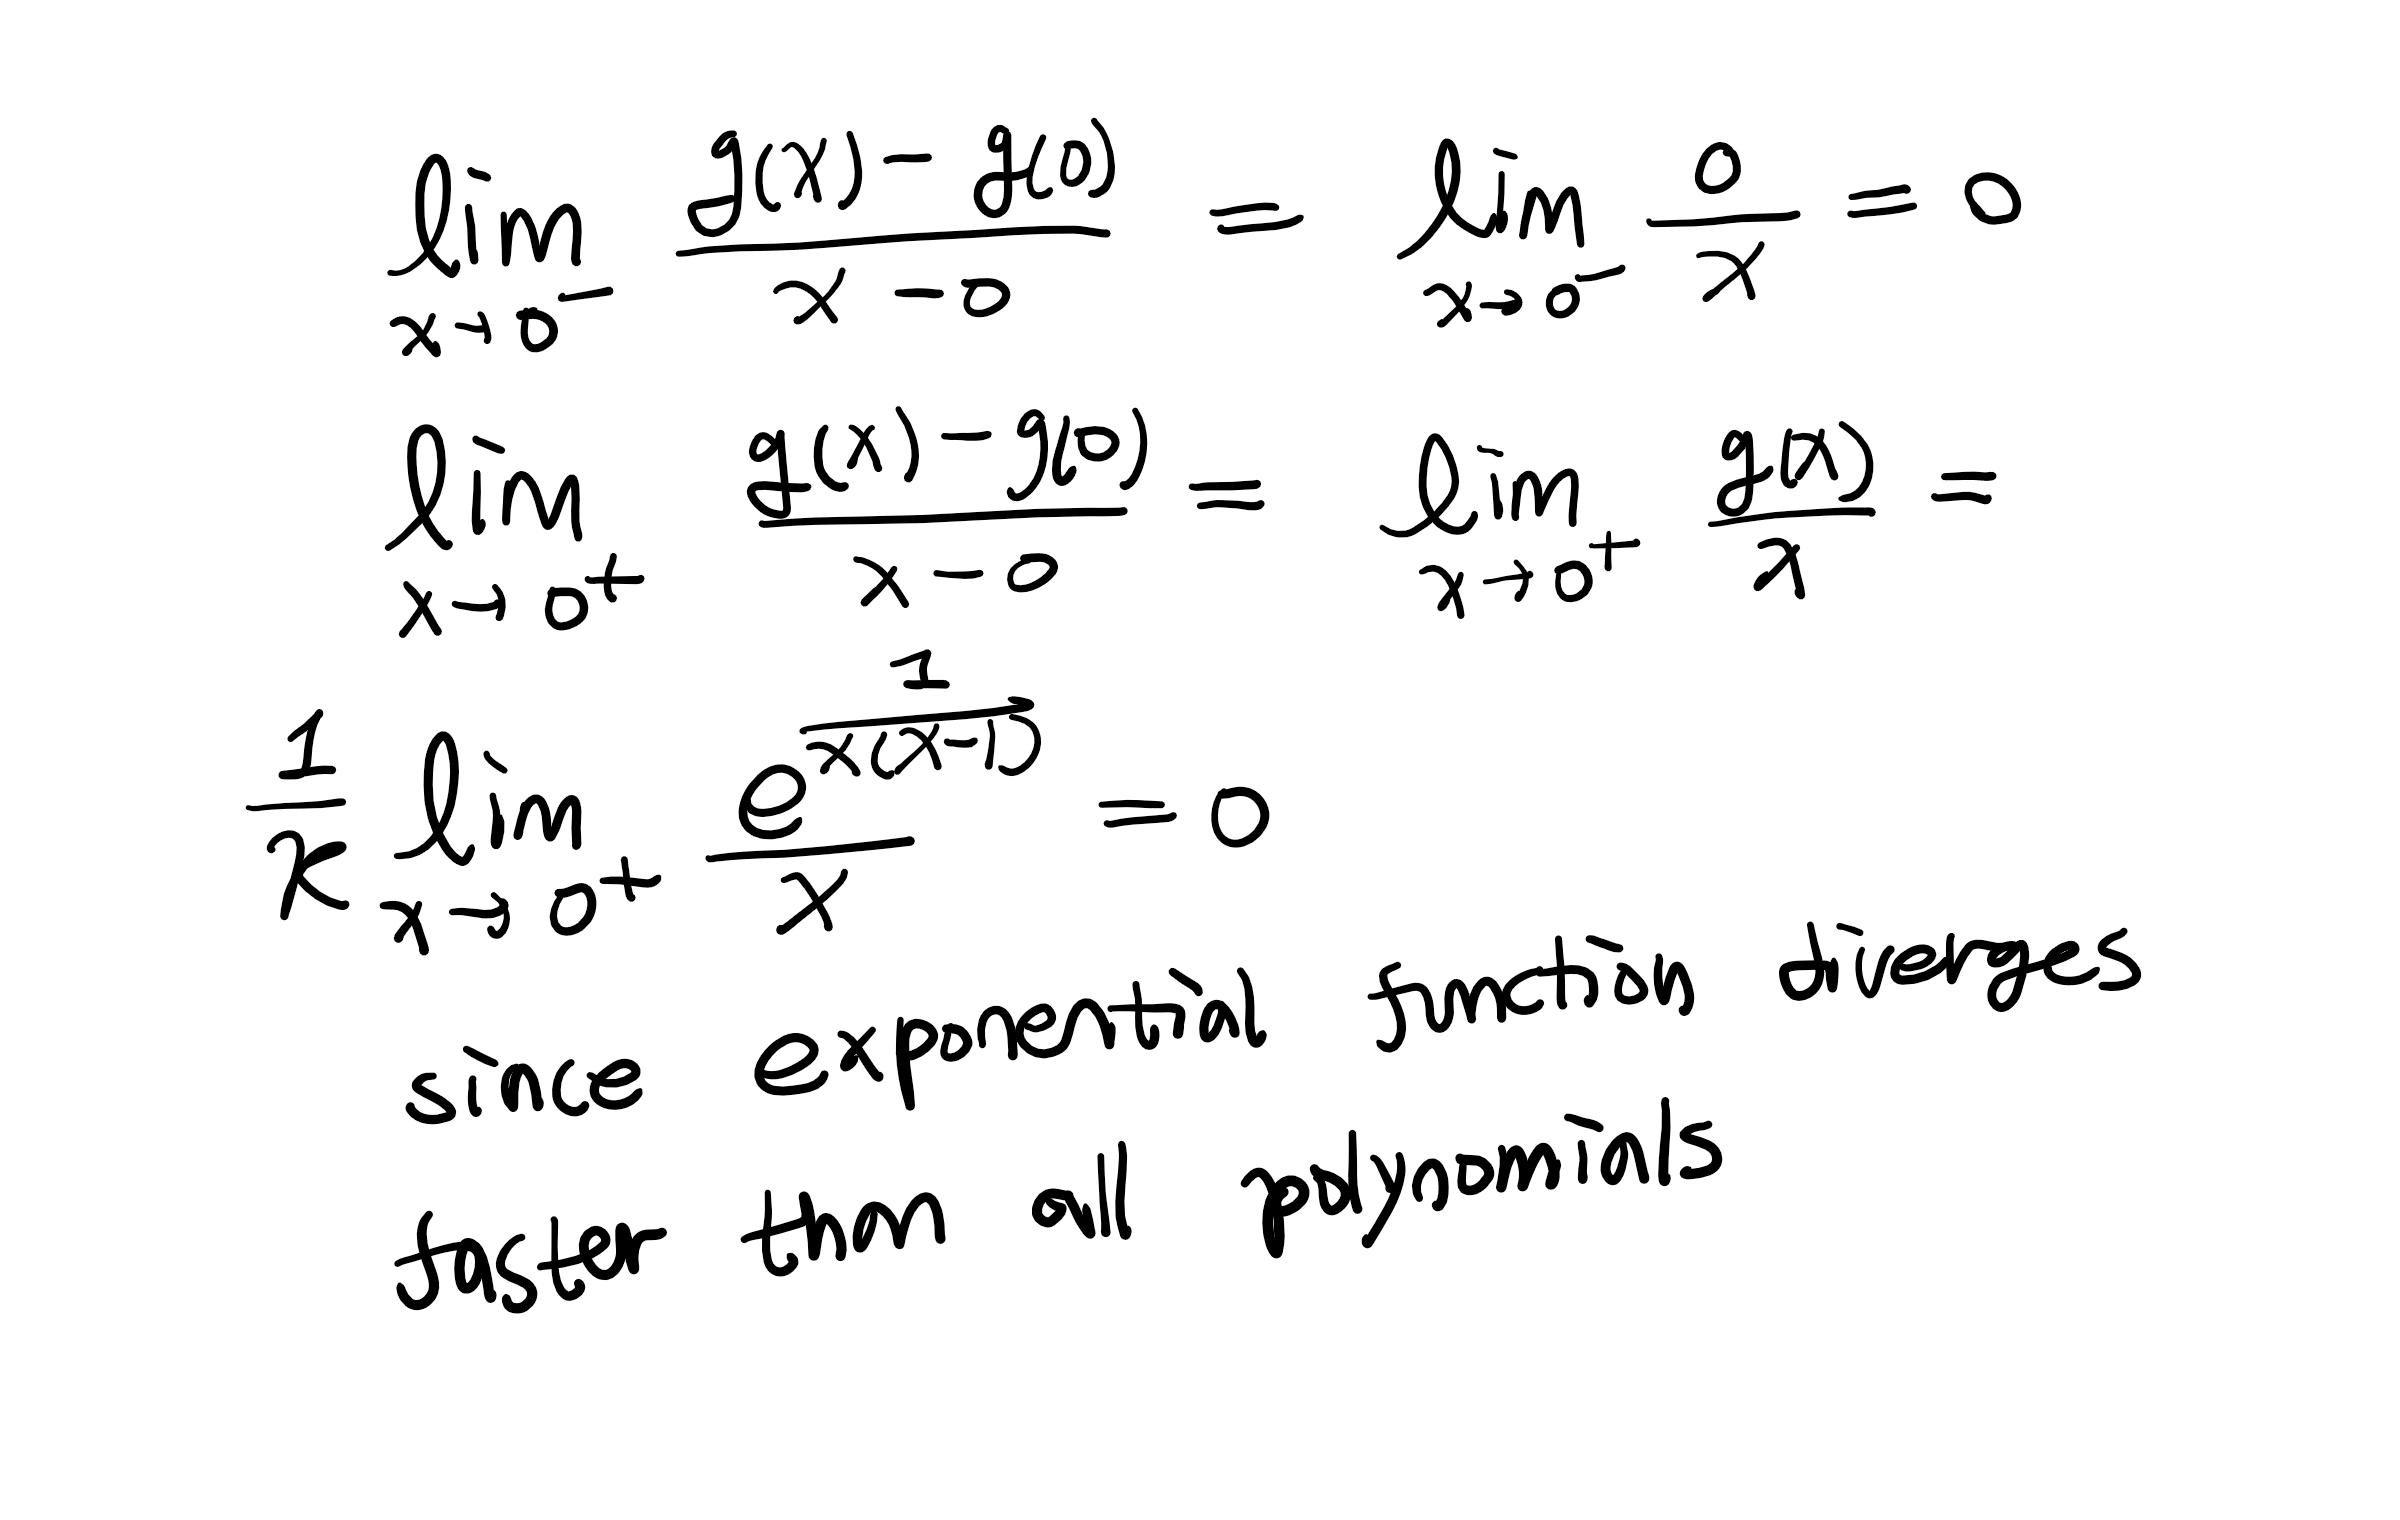 lim x→0⁻ (g(x) − g(0))/(x − 0) = lim x→0⁻ 0/x = 0
lim x→0⁺ (g(x) − g(0))/(x − 0) = lim x→0⁺ g(x)/x =
1/K lim x→0⁺ e^(1/(x(x−1)))/x = 0
since exponential function diverges
faster than all polynomials